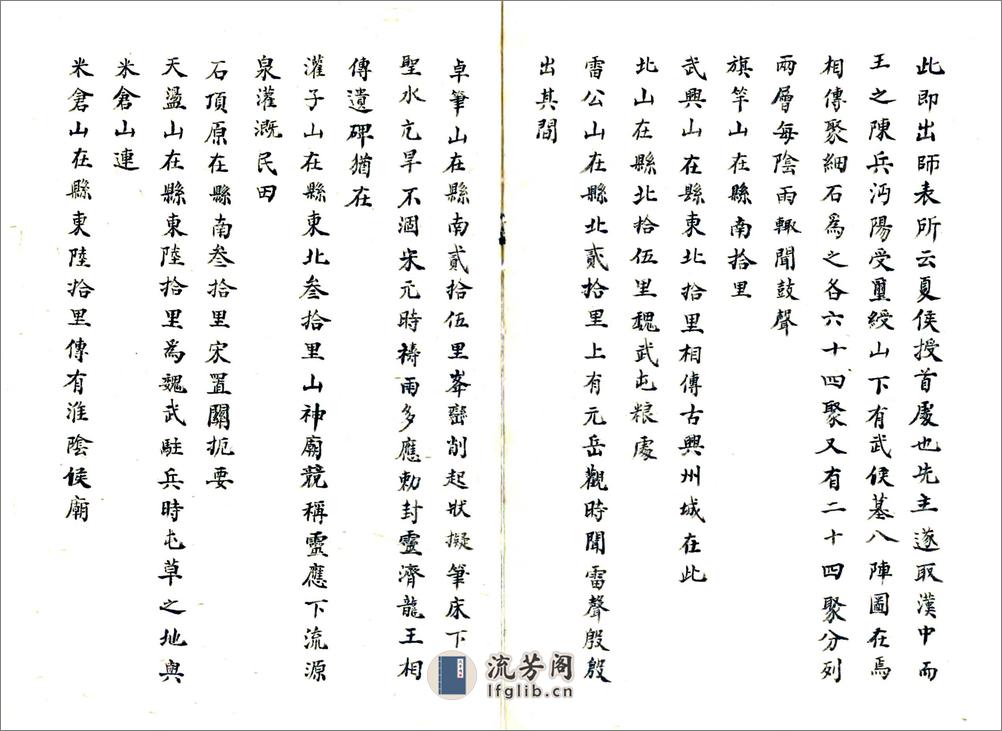 此即出師表所云夏侯授首處也先主遂取漢中而
王之陳兵沔陽受璽綬山下有武侯墓八陣圖在焉
相傳聚細石爲之各六十四聚又有二十四聚分列
兩層每陰雨輒聞鼓聲
旗竿山在縣南拾里
武興山在縣東北拾里相傳古興州城在此
北山在縣北拾伍里魏武屯粮處
雷公山在縣北貳拾里上有元岳觀時聞雷聲殷殷
出其間
卓筆山在縣南貳拾伍里峯巒削起狀擬筆床下
聖水亢旱不涸宋元時禱雨多應勅封靈濟龍王相
傳遺碑猶在
灌子山在縣東北叁拾里山神廟競稱靈應下流源
泉灌溉民田
石頂原在縣南叁拾里宋置關扼要
天盪山在縣東陸拾里為魏武駐兵時屯草之地與
米倉山連
米倉山在縣東陸拾里傳有淮陰侯廟
流芳阁
lfglib.cn